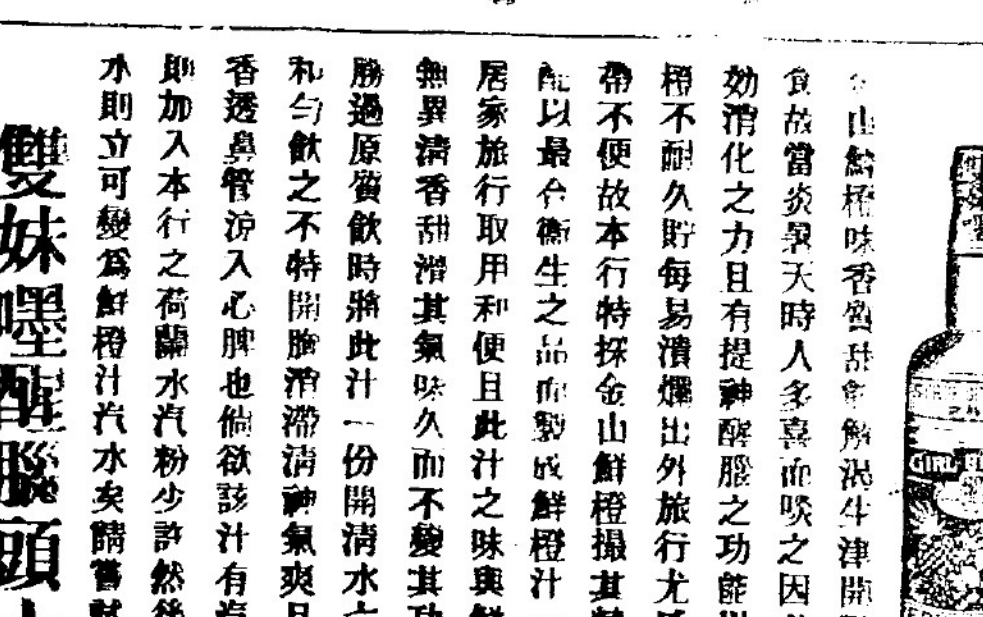 金山鮮橙味香質甘能解渴生津開
食故當炎暑天時人多喜而啖之因
効消化之力且有提神醒腦之功能
橙不耐久貯每易潰爛出外旅行尤
帶不便故本行特採金山鮮橙撮其
配以最合衞生之品而製成鮮橙汁
居家旅行取用利便且此汁之味與鮮
無異清香甜滑其氣味久而不變其功
勝過原質飲時將此汁一份開清水
和勻飲之不特開胸消滯清神氣爽
香透鼻管涼入心脾也倘欲該汁有汽
則加入本行之荷蘭水汽粉少許然後
水則立可變爲鮮橙汁汽水矣請嘗試
雙妹嚜醒腦頭
GIRL